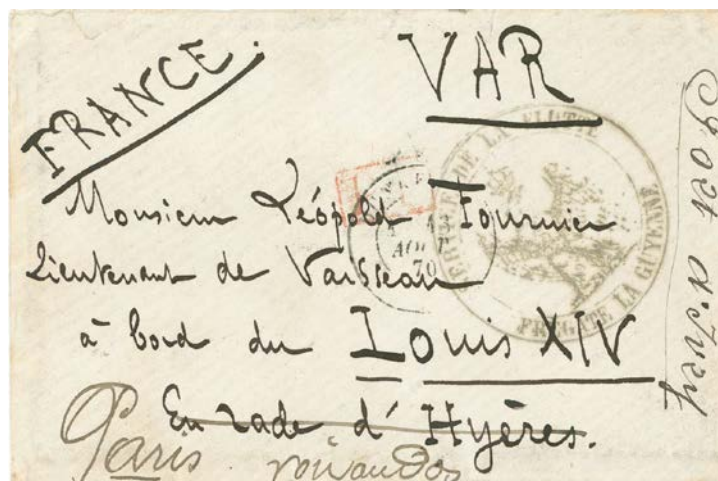 FRANCE.
VAR
Monsieur Léopold Fournier
Lieutenant de Vaisseau
à bord du Louis XIV
En rade d'Hyères.
Paris voir au dos
Fort d'Ivry
DE LA FLOTTE
FRÉGATE LA GUYENNE
AOUT
70